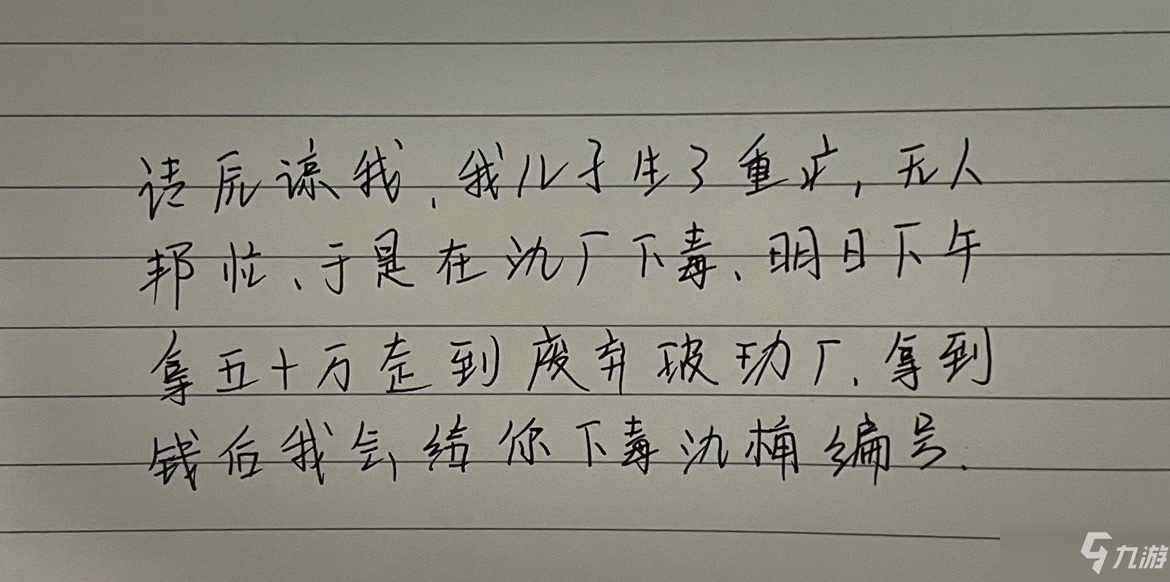 请原谅我，我儿子生了重病，无人
邦忙、于是在氿厂下毒、明日下午
拿五十万走到废弃玻玏厂、拿到
钱后我会给你下毒氿桶编号.
九游